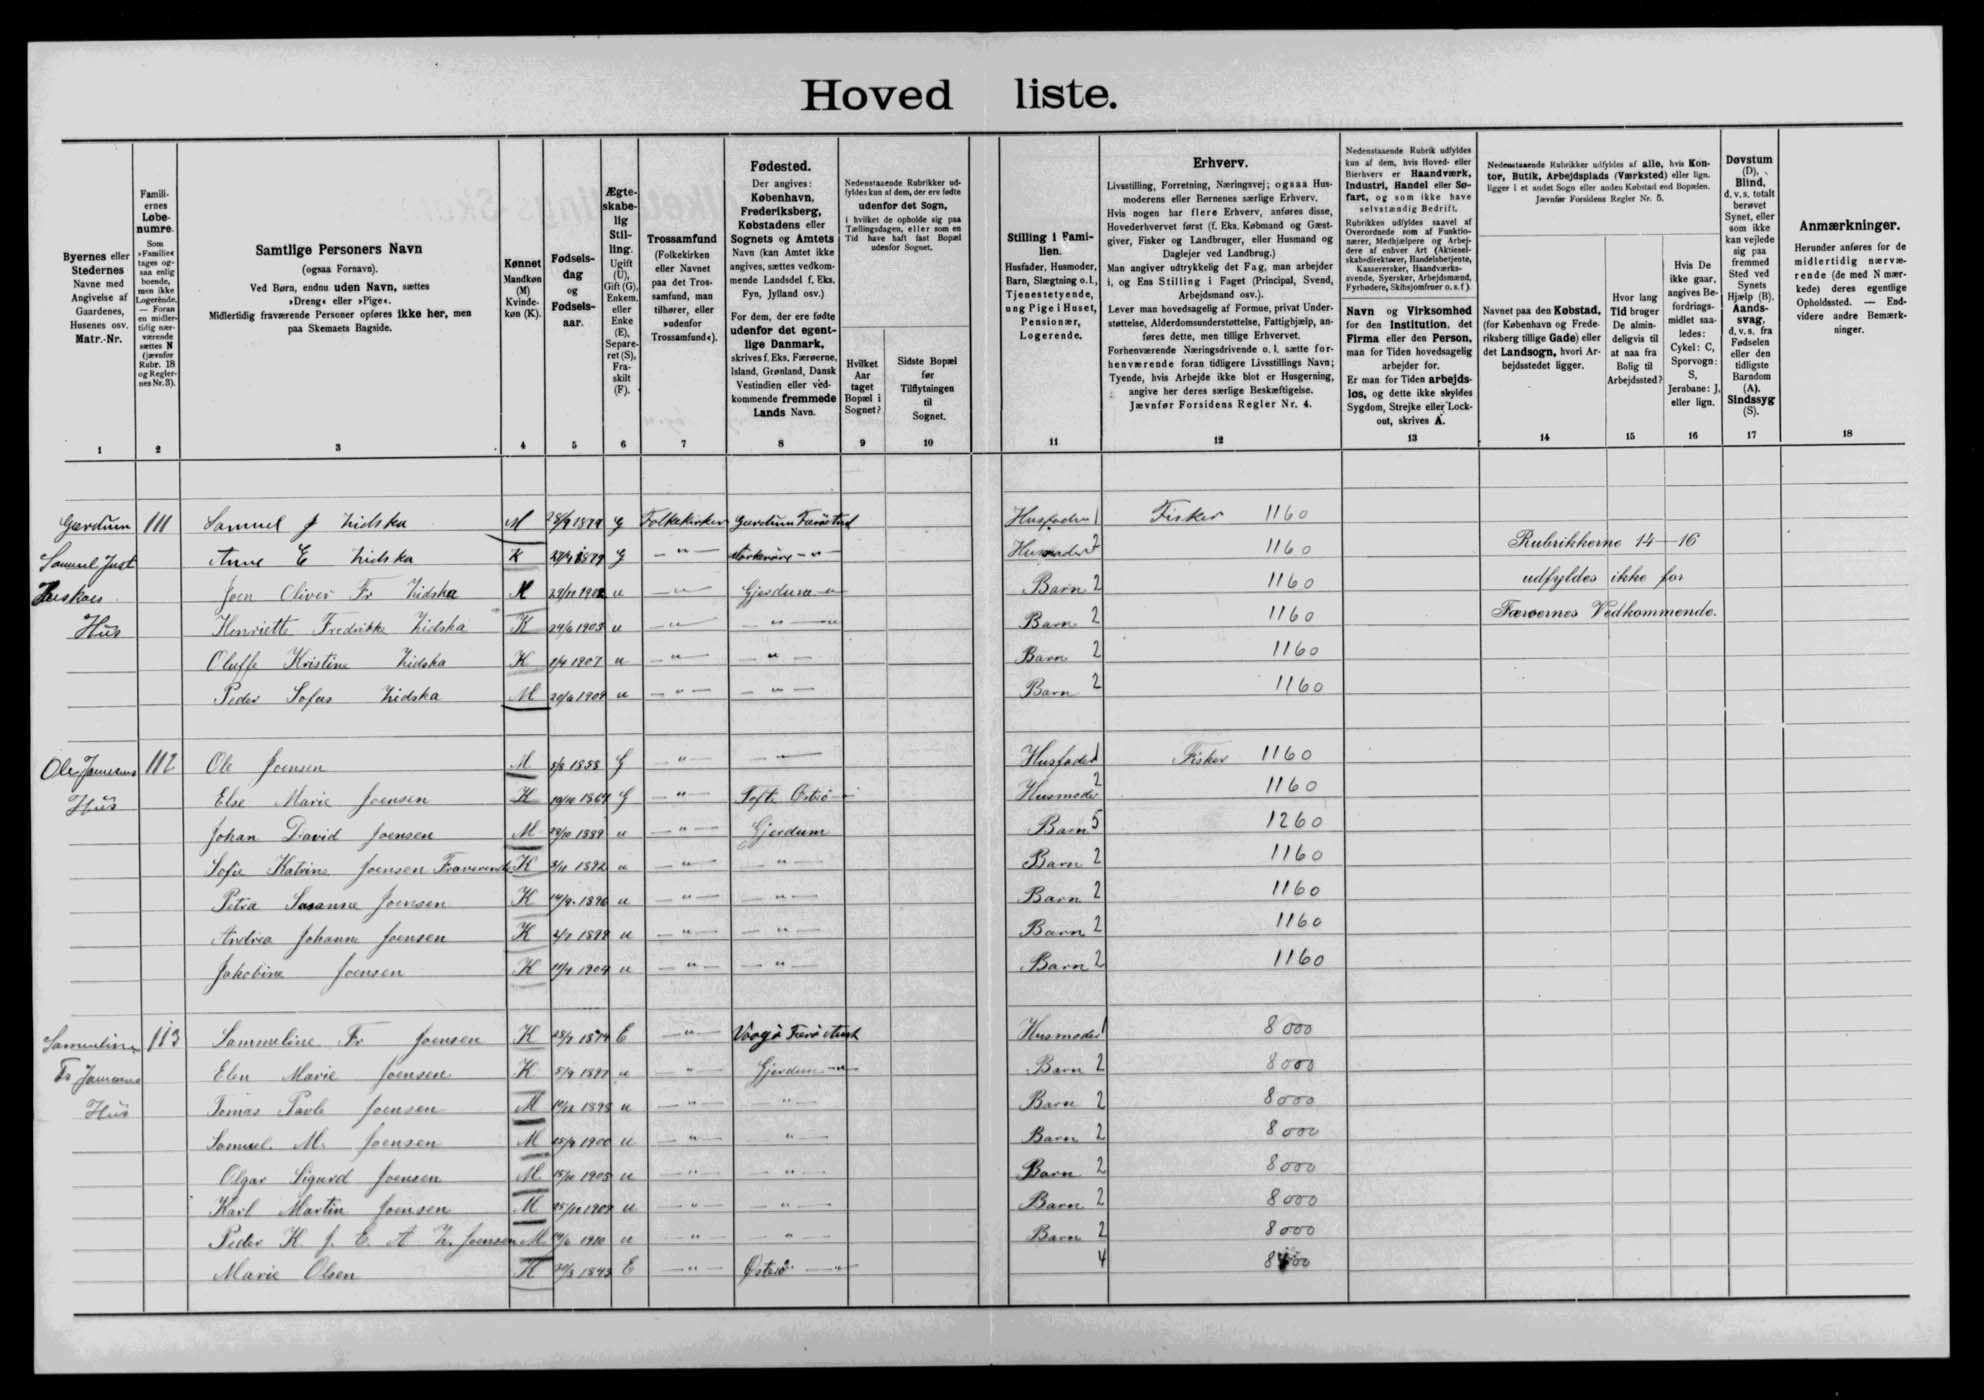 Hoved liste.
Byernes eller Stedernes Navne med Angivelse af Gaardenes, Husenes osv. Matr.-Nr.
Familiernes Løbenumre. Som »Familie« tages ogsaa enlig boende, men ikke Logerende. — Foran en midlertidig nærværende sættes N (jævnfør Rubr. 18 og Regler-nes Nr. 3).
Samtlige Personers Navn (ogsaa Fornavn). Ved Børn, endnu uden Navn, sættes »Dreng« eller »Pige«. Midlertidig fraværende Personer opføres ikke her, men paa Skemaets Bagside.
Kønnet Mandkøn (M) Kvindekøn (K).
Fødselsdag og Fødselsaar.
Ægteskabelig Stilling. Ugift (U), Gift (G), Enkem. eller Enke (E), Separeret (S), Fraskilt (F).
Trossamfund (Folkekirken eller Navnet paa det Trossamfund, man tilhører, eller »udenfor Trossamfund«).
Fødested. Der angives: København, Frederiksberg, Købstadens eller Sognets og Amtets Navn (kan Amtet ikke angives, sættes vedkommende Landsdel f. Eks. Fyn, Jylland osv.) For dem, der ere fødte udenfor det egentlige Danmark, skrives f. Eks. Færøerne, Island, Grønland, Dansk Vestindien eller vedkommende fremmede Lands Navn.
Nedenstaaende Rubrikker udfyldes kun af dem, der ere fødte udenfor det Sogn, i hvilket de opholde sig paa Tællingsdagen, eller som en Tid have haft fast Bopæl udenfor Sognet.
Hvilket Aar taget Bopæl i Sognet?
Sidste Bopæl før Tilflytningen til Sognet.
Stilling i Familien. Husfader, Husmoder, Barn, Slægtning o.l., Tjenestetyende, ung Pige i Huset, Pensionær, Logerende.
Erhverv. Livsstilling, Forretning, Næringsvej; ogsaa Husmoderens eller Børnenes særlige Erhverv. Hvis nogen har flere Erhverv, anføres disse, Hovederhvervet først (f. Eks. Købmand og Gæstgiver, Fisker og Landbruger, eller Husmand og Daglejer ved Landbrug.) Man angiver udtrykkelig det Fag, man arbejder i, og Ens Stilling i Faget (Principal, Svend, Arbejdsmand osv.). Lever man hovedsagelig af Formue, privat Understøttelse, Alderdomsunderstøttelse, Fattighjælp, anføres dette, men tillige Erhvervet. Forhenværende Næringsdrivende o. l. sætte forhenværende foran tidligere Livsstillings Navn; Tyende, hvis Arbejde ikke blot er Husgerning, angive her deres særlige Beskæftigelse. Jævnfør Forsidens Regler Nr. 4.
Nedenstaaende Rubrik udfyldes kun af dem, hvis Hoved- eller Bierhverv er Haandværk, Industri, Handel eller Søfart, og som ikke have selvstændig Bedrift. Rubrikkes udfyldes saavel af Overordnede som af Funktionærer, Medhjælpere og Arbejdere af enhver Art (Aktieselskabsdirektører, Handelsbetjente, Kasserersker, Haandværkssvende, Syersker, Arbejdsmænd, Fyrbødere, Skibsjomfruer o. s. f.).
Navn og Virksomhed for den Institution, det Firma eller den Person, man for Tiden hovedsagelig arbejder for. Er man for Tiden arbejdsløs, og dette ikke skyldes Sygdom, Strejke eller Lockout, skrives A.
Nedenstaaende Rubrikker udfyldes af alle, hvis Kontor, Butik, Arbejdsplads (Værksted) eller lign. ligger i et andet Sogn eller anden Købstad end Bopælen. Jævnfør Forsidens Regler Nr. 5.
Navnet paa den Købstad, (for København og Frederiksberg tillige Gade) eller det Landsogn, hvori Arbejdsstedet ligger.
Hvor lang Tid bruger De almindeligvis til at naa fra Bolig til Arbejdssted?
Hvis De ikke gaar, angives Befordringsmidlet saaledes: Cykel: C, Sporvogn: S, Jernbane: J, eller lign.
Døvstum (D), Blind, d. v. s. totalt berøvet Synet, eller som ikke kan vejlede sig paa fremmed Sted ved Synets Hjælp (B). Aandssvag, d. v. s. fra Fødselen eller den tidligste Barndom (A). Sindssyg (S).
Anmærkninger. Herunder anføres for de midlertidig nærværende (de med N mærkede) deres egentlige Opholdssted. — Endvidere andre Bemærkninger.
1 2 3 4 5 6 7 8 9 10 11 12 13 14 15 16 17 18
Gærdum 111 Samuel J Zidska M 1879 G Folkekirken Gærdum Færø Husfader 1 Fisker 1160
Samuel Just Anne E Zidska K 1879 G — " — — " — Husmoder 2 1160 Rubrikkerne 14—16
Joen Oliver Fr Zidska M u — " — Gjerdum — " — Barn 2 1160 udfyldes ikke for
Hus Henriette Fredrikke Zidska K 24/6 1905 u — " — — " — Barn 2 1160 Færøernes Vedkommende.
Oluffe Kristine Zidska K 1907 u — " — — " — Barn 2 1160
Peder Sofus Zidska M 1909 u — " — — " — Barn 2 1160
Ole Joensens 112 Ole Joensen M 1858 G — " — — " — Husfader 1 Fisker 1160
Hus Else Marie Joensen K G — " — Østrø Husmoder 2 1160
Johan David Joensen M 1889 u — " — Gjerdum Barn 5 1260
Sofie Katrine Joensen Fraværende K 1892 u — " — — " — Barn 2 1160
Petra Susanne Joensen K 1896 u — " — — " — Barn 2 1160
Andrea Johanne Joensen K 1899 u — " — — " — Barn 2 1160
Jakobine Joensen K 1904 u — " — — " — Barn 2 1160
Sammeline 113 Sammeline Fr Joensen K 1874 E — " — Vaagø Færø Amt Husmoder 1 8000
Fr Joensens Elen Marie Joensen K 1897 u — " — Gjerdum — " — Barn 2 8000
Hus Tomas Pavle Joensen M 1898 u — " — — " — Barn 2 8000
Samuel M. Joensen M 1900 u — " — — " — Barn 2 8000
Olgar Sigurd Joensen M 1905 u — " — — " — Barn 2 8000
Karl Martin Joensen M u — " — — " — Barn 2 8000
Peder K. J. E. A. Z. Joensen M 1910 u — " — — " — Barn 2 8000
Marie Olsen K 1843 E — " — Østrø — " — 4